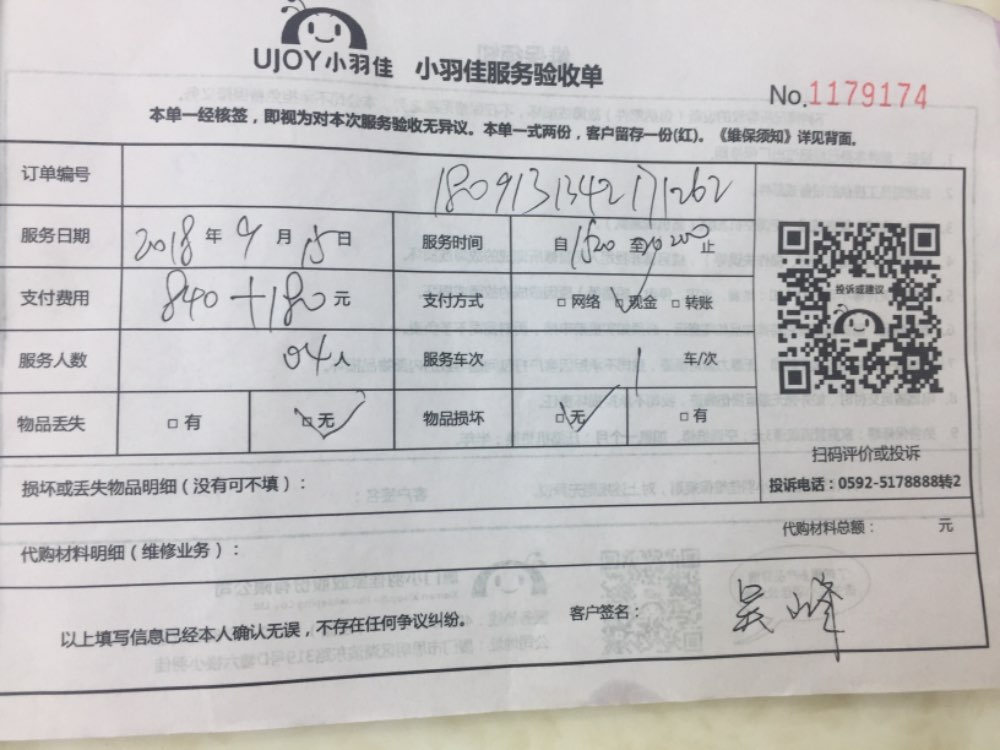 UJOY小羽佳 小羽佳服务验收单
No.1179174
本单一经核签，即视为对本次服务验收无异议。本单一式两份，客户留存一份(红)。《维保须知》详见背面。
订单编号 1809131342171262
服务日期 2018年9月15日 服务时间 自1520至 止
支付费用 840+180元 支付方式 □网络 □现金 □转账
投诉或建议
服务人数 04人 服务车次 1 车/次
物品丢失 □有 □无 物品损坏 □无 □有
扫码评价或投诉
损坏或丢失物品明细（没有可不填）：
投诉电话：0592-5178888转2
代购材料明细（维修业务）：
代购材料总额： 元
以上填写信息已经本人确认无误，不存在任何争议纠纷。
客户签名： 吴峰